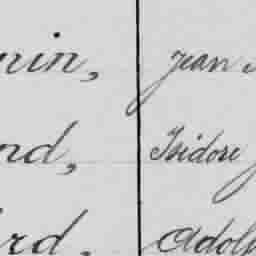 nin, Jean
nd, Isidore
rd, Adolp